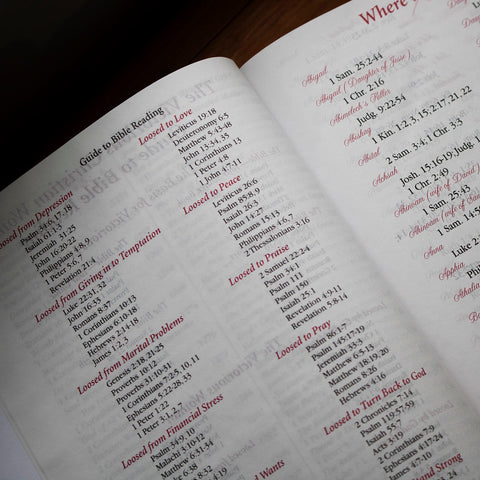 Guide to Bible Reading
Loosed from Depression
Psalm 34:9,17-19
Isaiah 61:1-3
Jeremiah 31:25
John 16:20-22
Romans 8:18
Philippians 4:8,9
1 Peter 5:6,7
Revelation 21:4
Loosed from Giving in to Temptation
Luke 22:31-32
John
Romans 8:37
1 Corinthians 10:13
Ephesians 6:10-18
Hebrews 2:14-18
James 1:2,3
Loosed from Marital Problems
Genesis 2:18,21-25
Proverbs 10:12
Proverbs 31:10-31
1 Corinthians 7:2-5, 10, 11
Ephesians 5:22-28,33
1 Peter 1:22
1 Peter 3:1,2,7
Loosed from Financial Stress
Psalm 34:9,10
Malachi 3:10-12
Matthew 6:31-34
6:38
8:32
4:19
Loosed to Love
Leviticus 19:18
Deuteronomy 6:5
Matthew 5:43-48
John 13:34,35
1 Corinthians 13
1 Peter 4:8
1 John 4:7-11
Loosed to Peace
Leviticus 26:6
Psalm 85:8,9
Isaiah 26:3
John 14:27
Romans 15:13
Philippians 4:6,7
2 Thessalonians 3:16
Loosed to Praise
2 Samuel 22:2-4
Psalm 34:1
Psalm 111
Psalm 150
Isaiah 25:1
Revelation 4:9-11
Revelation 5:8-14
Loosed to Pray
Psalm 86:1-7
Psalm 145:17-19
Jeremiah 33:3
Matthew 6:5-13
Matthew 18:19,20
Romans 8:26
Hebrews 4:16
Loosed to Turn Back to God
2 Chronicles 7:14
Psalm 119:57-59
Isaiah 55:7
Acts 3:19
2 Corinthians 7:9-10
Ephesians 4:17-24
James 4:7-10
and Strong
Wants
Where
Abigail
1 Sam. 25:2-44
Abigail (Daughter of Jesse)
1 Chr. 2:16
Abimelech's Killer
Judg. 9:22-54
Abishag
1 Kin. 1:2,3,15, 2:17,21,22
Abital
2 Sam. 3:4, 1 Chr. 3:3
Achsah
Josh. 15:16-19; Judg.
1 Chr. 2:49
Ahinoam (wife of David)
1 Sam. 25:43
Ahinoam (wife of
1 Sam. 14:50
Anna
Luke 2:
Apphia
Athaliah